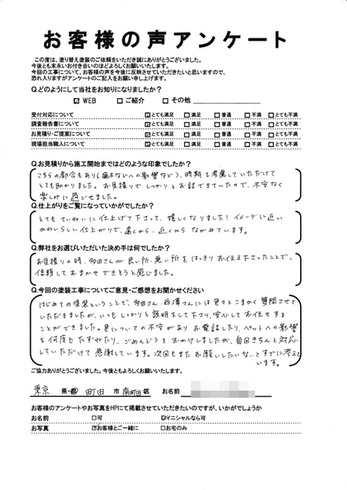 お客様の声アンケート
この度は、塗り替え塗装のご依頼をいただき誠にありがとうございました。
今後とも末永いお付き合いのほどよろしくお願いいたします。
今回の工事について、お客様の声を今後に反映させていただきたいと思いますので、
恐れ入りますがアンケートのご記入をお願い申し上げます。
Q.どのようにして当社をお知りになりましたか?
☑ WEB □ ご紹介 □ その他
受付対応について ☑とても満足 □満足 □普通 □不満 □とても不満
調査報告書について ☑とても満足 □満足 □普通 □不満 □とても不満
お見積り・ご提案について ☑とても満足 □満足 □普通 □不満 □とても不満
現場担当職人について ☑とても満足 □満足 □普通 □不満 □とても不満
Q.お見積りから施工開始まではどのような印象でしたか?
こちらの都合もあり
時期を考慮していただけて
とても助かりました。お見積りでしっかりとお話できていたので、不安なく
楽しみに過ごせました。
Q.仕上がりをご覧になっていかがでしたか?
とてもていねいに仕上げて下さって、嬉しくなりました!イメージに近い
かわいらしい仕上がりで、遠くから、近くからながめています。
Q.弊社をお選びいただいた決め手は何でしたか?
お見積りの時、
良い所、悪い所をはっきりお伝え下さったことで、
信頼しておまかせできそうと感じました。
Q.今回の塗装工事についてご意見・ご感想をお聞かせください
はじめての塗装ということで、
さんには色々とこまかく質問させて
いただきましたが、いつもしっかりと説明をして下さり、安心してお任せする
ことができました。色についての不安がありお電話したり、ペットへの影響
を何度もたずねたり、ごめんどうをおかけしましたが、毎回きちんと対応
していただけて感謝しています。次回もまたお願いしたいな、とすでに考えて
います。
ご協力ありがとうございました。今後ともよろしくお願いいたします。
東京 県・都 町田 市 南町田 区 お名前
お客様のアンケートやお写真をHPにて掲載させていただきたいのですが、いかがでしょうか
お名前 □可 ☑イニシャルなら可
お写真 □お客様とご一緒に □お宅のみ